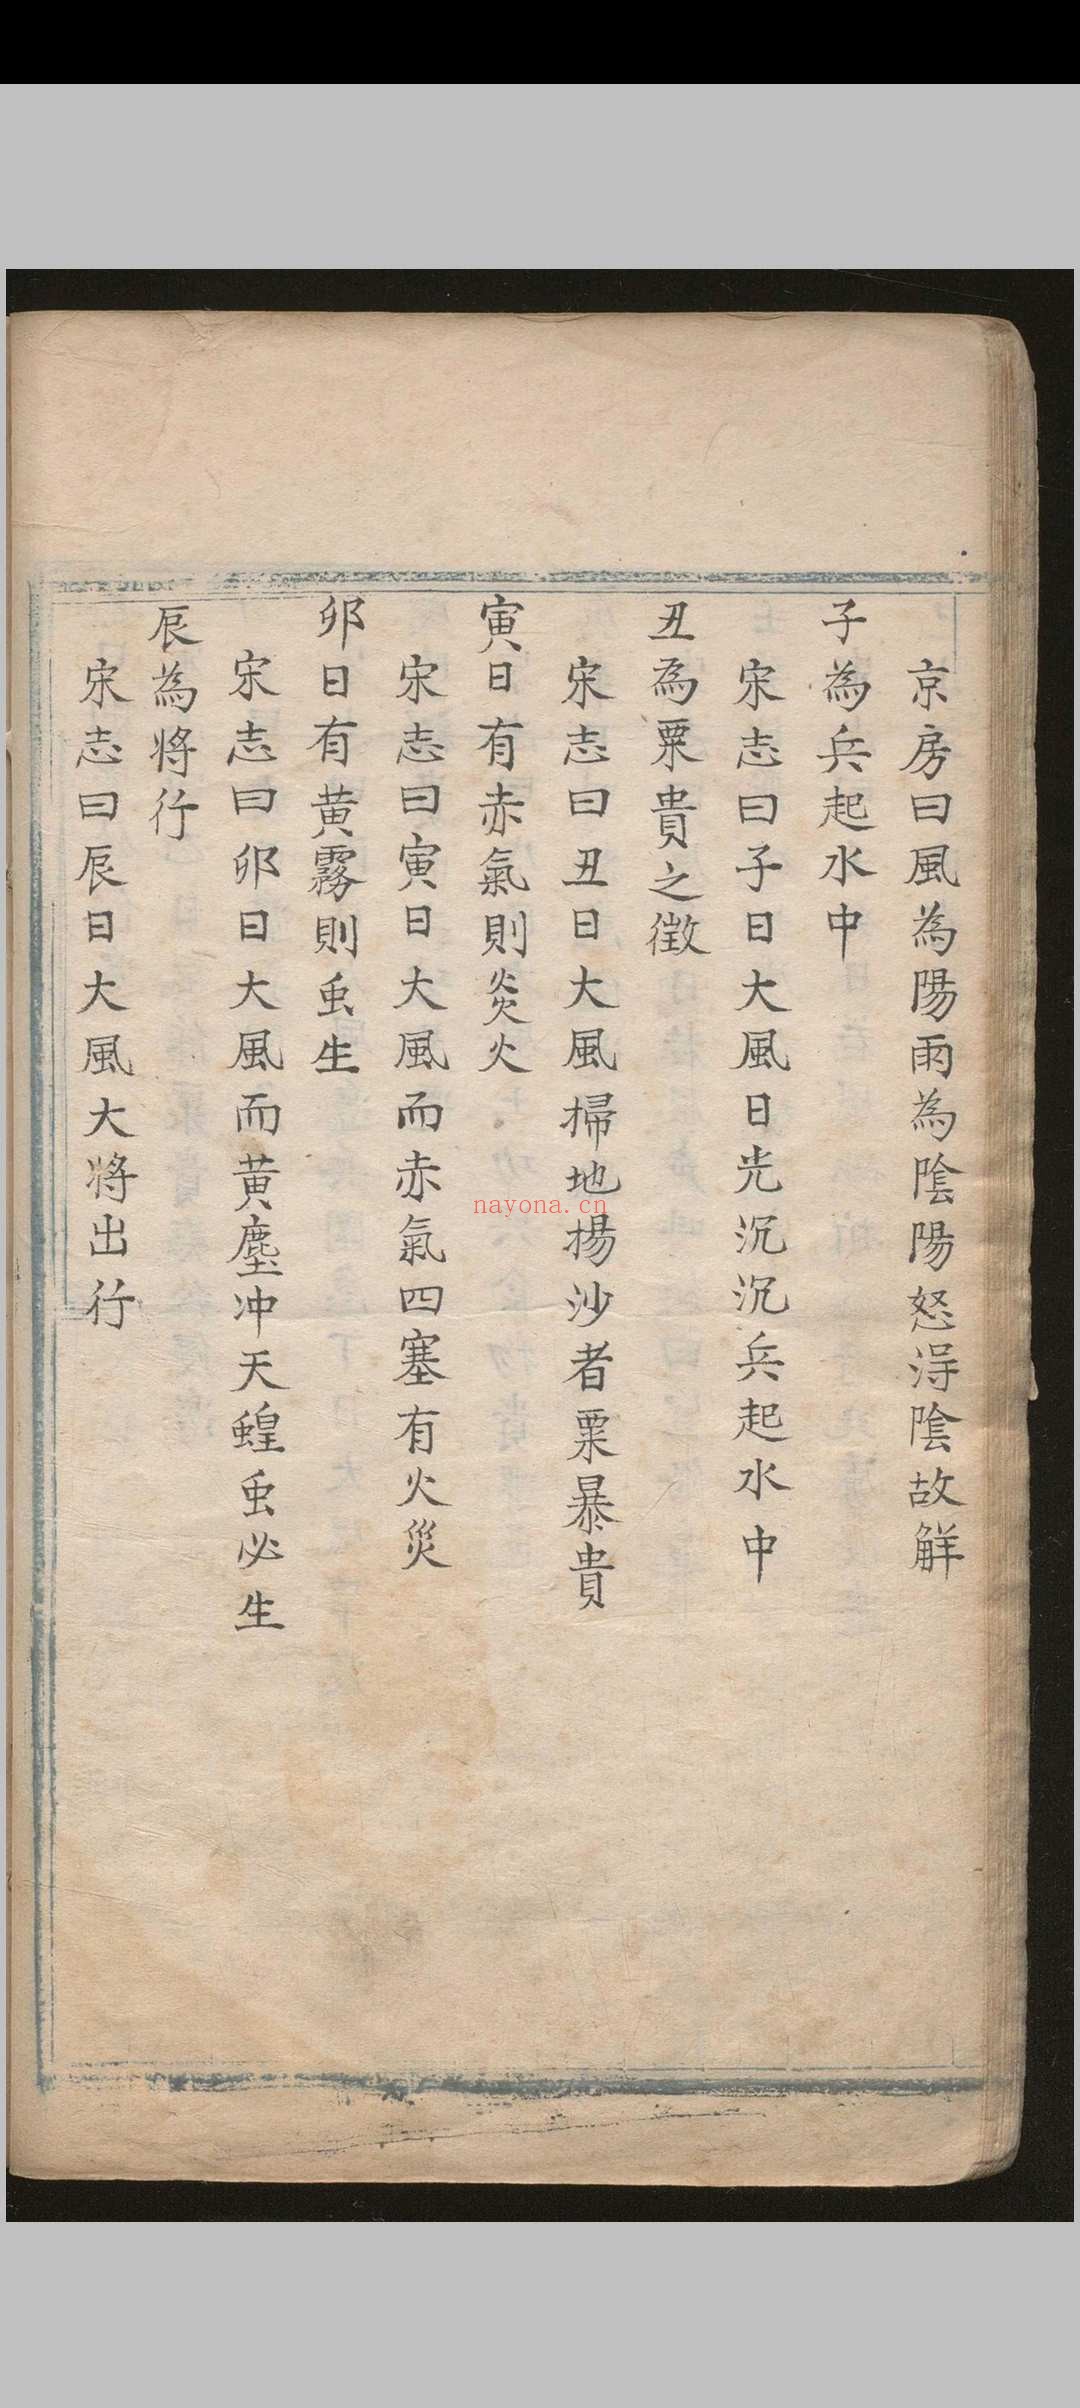 京房曰風為陽雨為陰陽怒淂陰故觧
子為兵起水中
宋志曰子日大風日光沉沉兵起水中
丑為粟貴之徵
宋志曰丑日大風掃地揚沙者粟暴貴
寅日有赤氣則炎火
宋志曰寅日大風而赤氣四塞有火災
卯日有黄霧則虫生
宋志曰卯日大風而黄塵冲天蝗虫必生
辰為将行
宋志曰辰日大風大将出行
nayona.cn